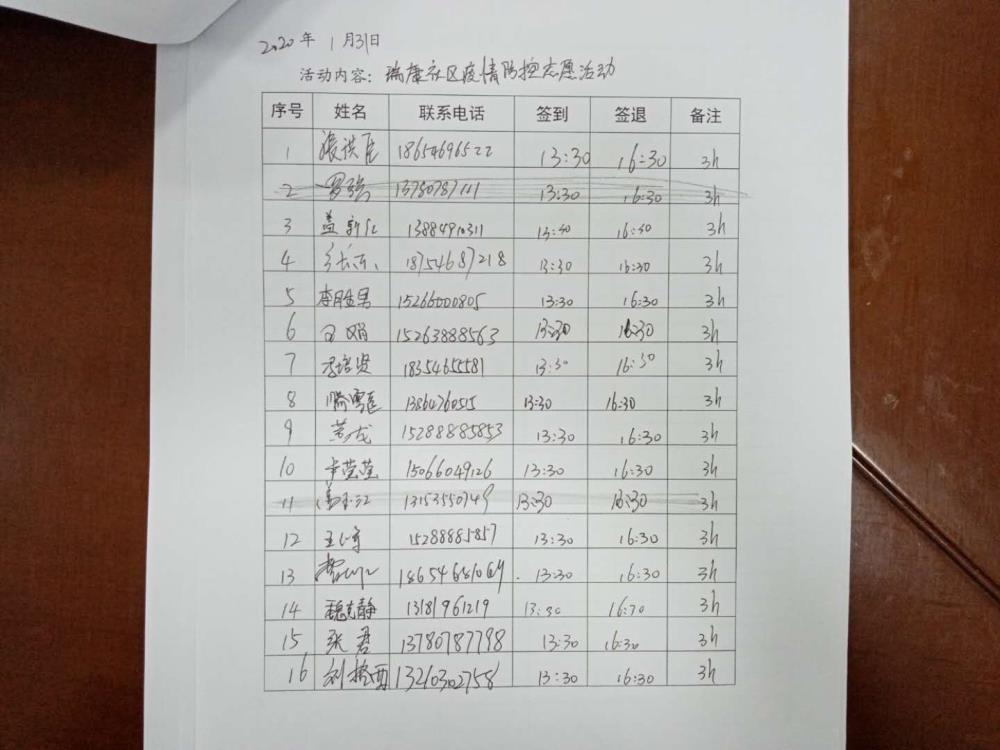 2020年 1月31日
活动内容：瑞康社区疫情防控志愿活动
序号 姓名 联系电话 签到 签退 备注
1 18654696522 13:30 16:30 3h
2 罗强 13780787111 13:30 16:30 3h
3 盖新 13884910311 13:30 16:30 3h
4 18754687218 13:30 16:30 3h
5 李胜男 15266000805 13:30 16:30 3h
6 娟 15263888563 13:30 16:30 3h
7 18354655581 13:30 16:30 3h
8 13864760515 13:30 16:30 3h
9 15288885853 13:30 16:30 3h
10 莹莹 15066049126 13:30 16:30 3h
11 13:30 16:30 3h
12 15288885857 13:30 16:30 3h
13 13:30 16:30 3h
14 魏克静 13181961219 13:30 16:30 3h
15 张君 13780787798 13:30 16:30 3h
16 刘 13210302758 13:30 16:30 3h